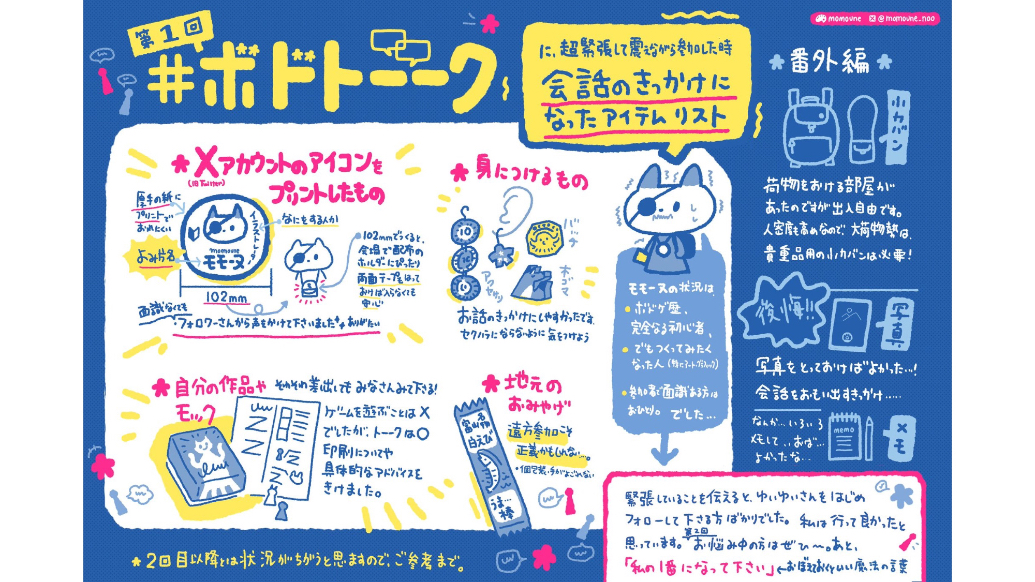 第1回
#ボドトーーク
に、超緊張して震えながら参加した時
会話のきっかけに
なったアイテムリスト
momovne @momovne_noo
Xアカウントのアイコンを
(旧Twitter)
プリントしたもの
厚手の紙に
プリントで
おれにくい
よみ片名
イラストレーター
momovne
モモーヌ
なにをする人か
102mm
102mmでつくると、
会場で配布の
ホルダーにぴったり
両面テープをはって
おけば入らなくても
安心
面識なくても
・フォロワーさんから声をかけて下さいました ありがたい
身につけるもの
10
10
アクセサリ
バッチ
木ゴマ
お話のきっかけにしやすかったです。
セクハラにならないように気をつけよう
自分の作品や
モック
それぞれ差出してもみなさんみて下さる!
ゲームを遊ぶことは×
でしたが、トーークは○
印刷についてや
具体的なアドバイスを
きけました。
地元の
おみやげ
富山名物
白えび
うま…棒
遠方参加こそ
正義かもしれない…。
・個包装・手がよごれない
モモーヌの状況は
・ボドゲ歴、
完全なる初心者、
・でもつくってみたく
なった人
・参加者で面識ある方は
おひとり。でした…
番外編
小カバン
荷物をおける部屋が
あったのですが出入自由です。
人密度も高めなので、大荷物勢は、
貴重品用の小カバンは必要!
後悔!!
写真
写真をとっておけばよかった…!
会話をおもい出すきっかけ……
なんか…いろいろ
メモして…おば…
よかったな…
MEMO
メモ
緊張していることを伝えると、ゆいゆいさんをはじめ
フォローして下さる方ばかりでした。私は行って良かったと
思っています。第2回お悩み中の方はぜひ〜。あと、
「私の1番になって下さい」←おぼえておくといい魔法の言葉
*2回目以降とは状況がちがうと思いますので、ご参考まで。